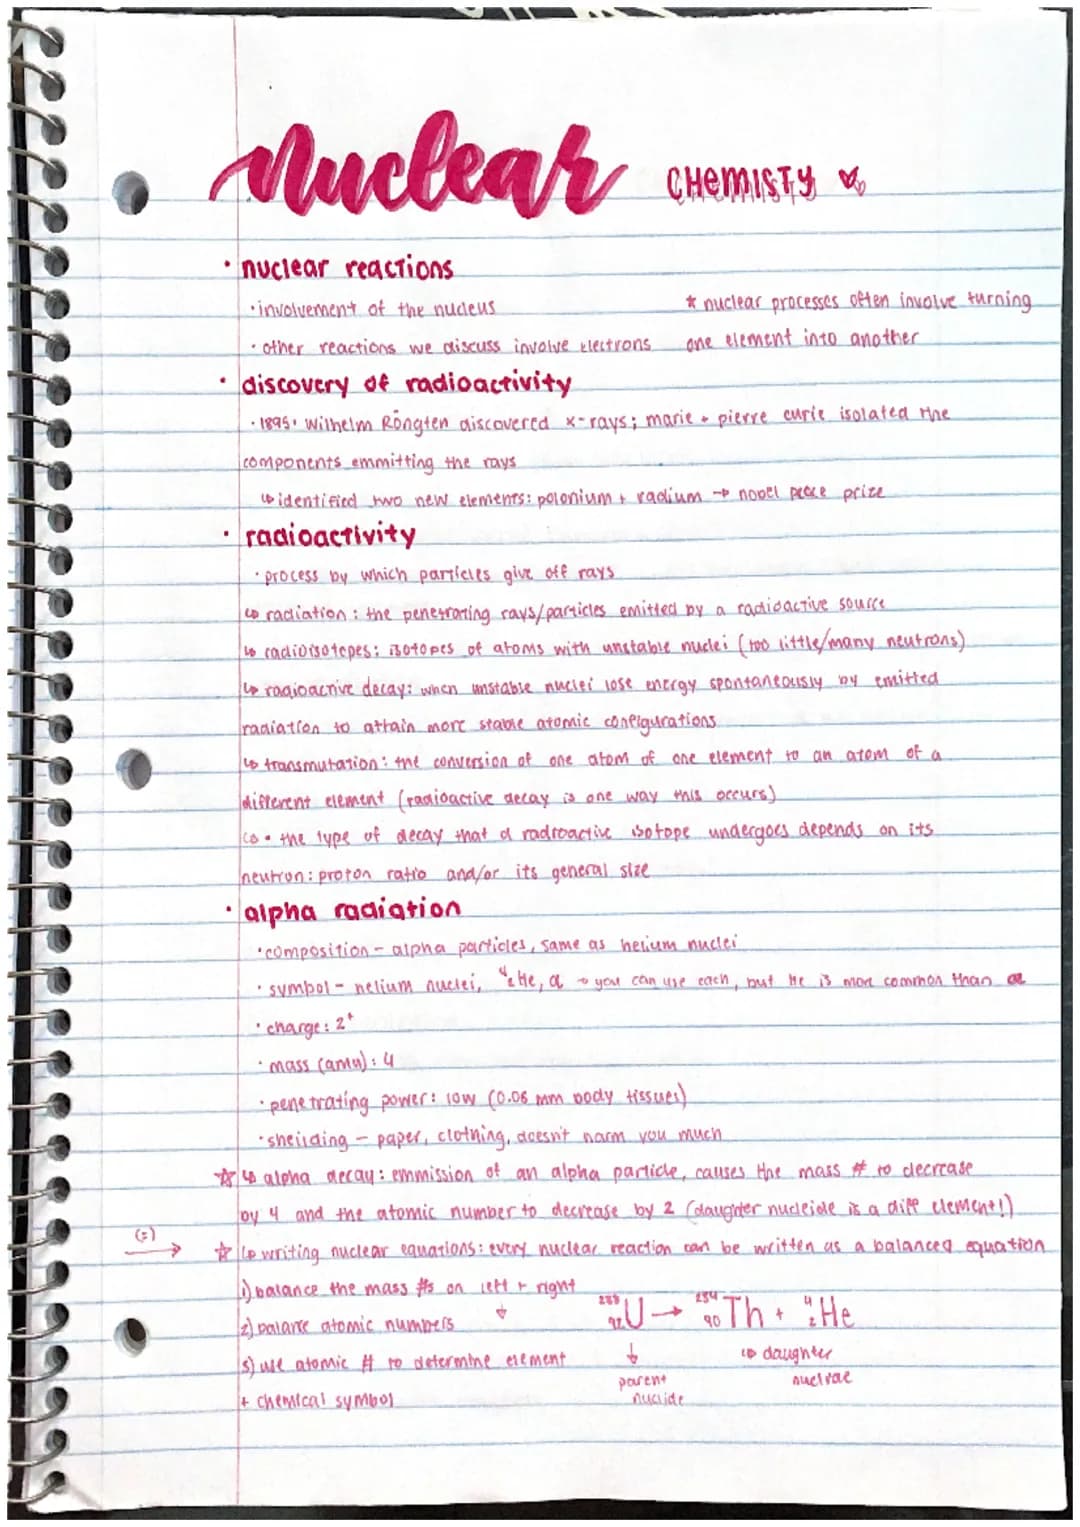 Nuclear CHEMISTY
· nuclear reactions
· involvement of the nucleus
* nuclear processes often involve turning
· other reactions we discuss involve electrons
one element into another
· discovery of radioactivity
· 1895: Wilhelm Röngten discovered x-rays; marie + pierre curie isolated the
components emmitting the rays
↳ identified two new elements: polonium + radium → nobel peace prize
· radioactivity
· process by which particles give off rays
↳ radiation: the penetrating rays/particles emitted by a radioactive source
↳ radioisotopes: isotopes of atoms with unstable nuclei (too little/many neutrons)
↳ radioactive decay: when unstable nuclei lose energy spontaneously by emitted
radiation to attain more stable atomic configurations
↳ transmutation: the conversion of one atom of one element to an atom of a
different element (radioactive decay is one way this occurs)
↳ • the type of decay that a radioactive isotope undergoes depends on its
neutron:proton ratio and/or its general size
· alpha radiation
· composition - alpha particles, same as helium nuclei
· symbol - helium nuclei, ⁴₂He, α → you can use each, but He is more common than α
· charge: 2⁺
· mass (amu): 4
· penetrating power: low (0.05 mm body tissues)
· sheilding - paper, clothing, doesn't harm you much
☆ ↳ alpha decay: emmission of an alpha particle, causes the mass # to decrease
by 4 and the atomic number to decrease by 2 (daughter nucleide is a diff element!)
(=) → ☆ ↳ writing nuclear equations: every nuclear reaction can be written as a balanced equation
1) balance the mass #s on left + right
2) balance atomic numbers ↓
²³⁸₉₂U → ²³⁴₉₀Th + ⁴₂He
3) use atomic # to determine element
+ chemical symbol
↓ parent
nuclide
↳ daughter